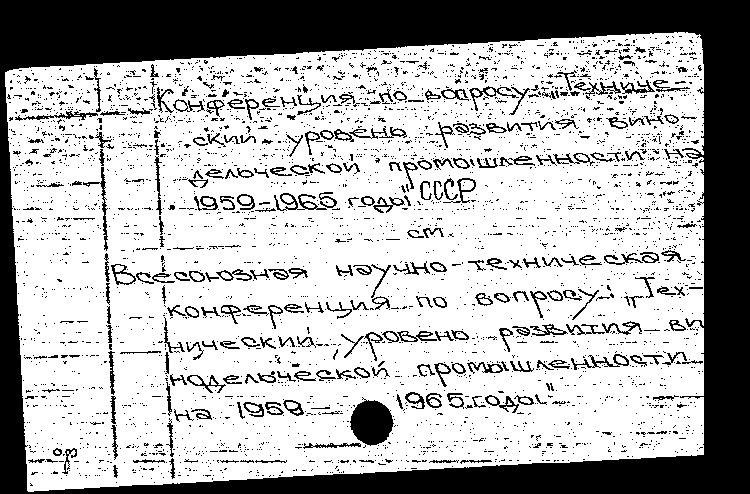 Конференция по вопросу: „Техниче-
ский уровень развития вино-
дельческой промышленности на
1959-1965 годы" СССР
см.
Всесоюзная научно-техническая
конференция по вопросу: „Тех-
нический уровень развития ви
нодельческой промышленности
на 1959 — 1965 годы"
ор